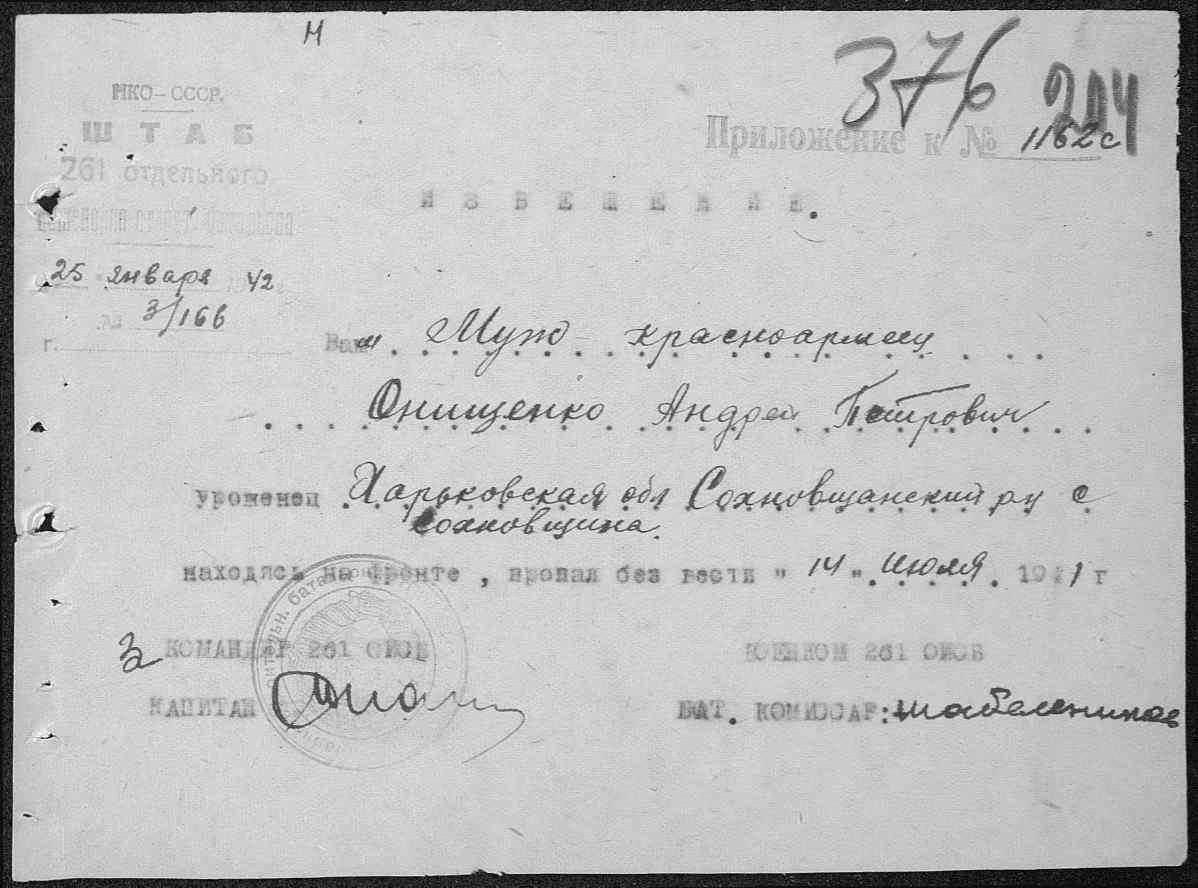 Н
376
204
НКО-СССР.
ШТАБ
261 отдельного
Приложение к № 1162с
ИЗВЕЩЕНИЕ.
25 января 42
№ 3/166
г.
Ваш Муж красноармеец
Онищенко Андрей Петрович
уроженец Харьковская обл Сохновщанский рн с
Сохновщина.
находясь на фронте, пропал без вести "14" Июля 1941 г
З КОМАНДИР 261 ОИСБ
ВОЕНКОМ 261 ОИСБ
КАПИТАН
БАТ. КОМИССАР: